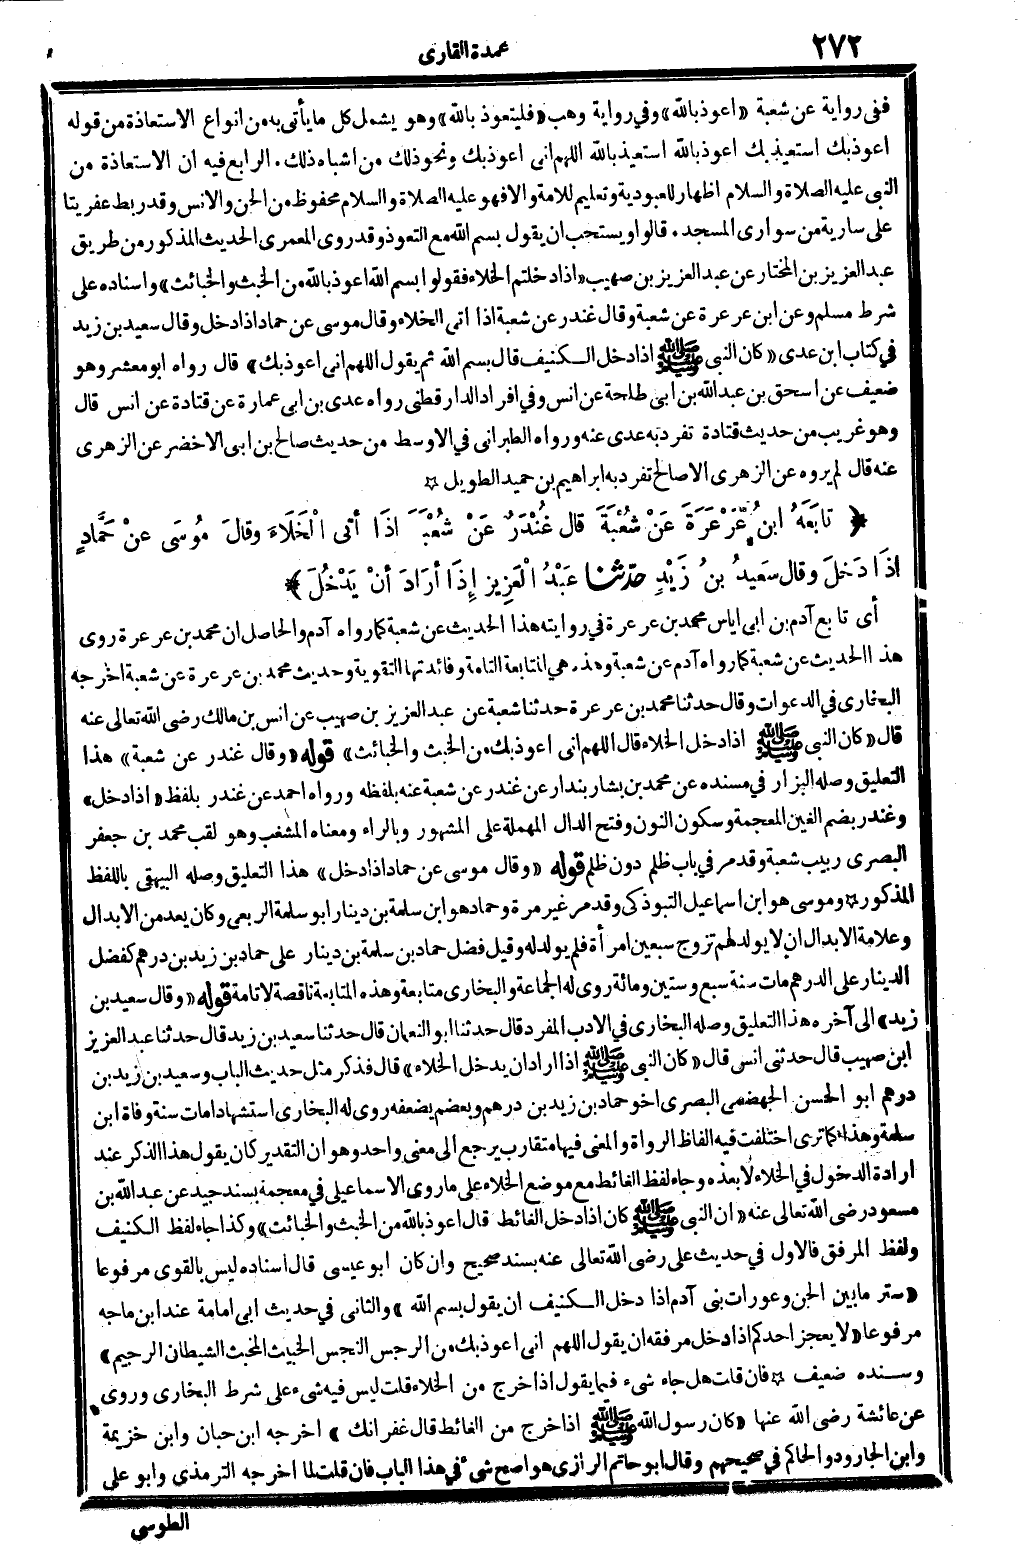 ٢٧٢
عمدة القارى
ففى رواية عن شعبة «اعوذ بالله» وفي رواية وهب «فليتعوذ بالله» وهو يشمل كل ما يأتى به من انواع الاستعاذة من قوله
اعوذ بك استعيذ بك اعوذ بالله استعيذ بالله اللهم انى اعوذ بك ونحو ذلك من اشباه ذلك . الرابع فيه ان الاستعاذة من
النبى عليه الصلاة والسلام اظهار للعبودية وتعليم للامة والا فهو عليه الصلاة والسلام محفوظ من الجن والانس وقد ربط عفريتا
على سارية من سوارى المسجد . قالوا ويستحب ان يقول بسم الله مع التعوذ وقد روى المعمرى الحديث المذكور من طريق
عبد العزيز بن المختار عن عبد العزيز بن صهيب «اذا دخلتم الخلاء فقولوا بسم الله اعوذ بالله من الخبث والخبائث» واسناده على
شرط مسلم وعن ابن عرعرة عن شعبة وقال غندر عن شعبة اذا اتى الخلاء وقال موسى عن حماد اذا دخل وقال سعيد بن زيد
في كتاب ابن عدى «كان النبى ﷺ اذا دخل الكنيف قال بسم الله ثم يقول اللهم انى اعوذ بك» قال رواه ابو معشر وهو
ضعيف عن اسحق بن عبد الله بن ابى طلحة عن انس وفي افراد الدارقطنى رواه عدى بن ابى عمارة عن قتادة عن انس قال
وهو غريب من حديث قتادة تفرد به عدى عنه ورواه الطبرانى في الاوسط من حديث صالح بن ابى الاخضر عن الزهرى
عنه قال لم يروه عن الزهرى الا صالح تفرد به ابراهيم بن حميد الطويل ☆
﴿ تابَعَهُ ابنُ عَرْعَرَةَ عَنْ شُعْبَةَ قال غُنْدَرٌ عَنْ شُعْبَةَ اذَا أتى الْخَلَاءَ وقالَ مُوسَى عنْ حَمَّادٍ
اذَا دَخلَ وقال سَعيدُ بنُ زَيْدٍ حدّثنا عَبْدُ الْعَزِيزِ إِذَا أرَادَ أنْ يَدْخُلَ ﴾
أى تابع آدم بن ابى اياس محمد بن عرعرة في روايته هذا الحديث عن شعبة كما رواه آدم والحاصل ان محمد بن عرعرة روى
هذا الحديث عن شعبة كما رواه آدم عن شعبة وهذه هي المتابعة التامة وفائدتها التقوية وحديث محمد بن عرعرة عن شعبة اخرجه
البخارى في الدعوات وقال حدثنا محمد بن عرعرة حدثنا شعبة عن عبد العزيز بن صهيب عن انس بن مالك رضى الله تعالى عنه
قال «كان النبى ﷺ اذا دخل الخلاء قال اللهم انى اعوذ بك من الخبث والخبائث» قوله «وقال غندر عن شعبة» هذا
التعليق وصله البزار في مسنده عن محمد بن بشار بندار عن غندر عن شعبة عنه بلفظه ورواه احمد عن غندر بلفظ «اذا دخل»
وغندر بضم الغين المعجمة وسكون النون وفتح الدال المهملة على المشهور وبالراء ومعناه المشغب وهو لقب محمد بن جعفر
البصرى ربيب شعبة وقد مر في باب ظلم دون ظلم قوله «وقال موسى عن حماد اذا دخل» هذا التعليق وصله البيهقى باللفظ
المذكور ☆ وموسى هو ابن اسماعيل التبوذكى وقد مر غير مرة وحماد هو ابن سلمة بن دينار ابو سلمة الربعى وكان يعد من الابدال
وعلامة الابدال ان لا يولد لهم تزوج سبعين امرأة فلم يولد له وقيل فضل حماد بن سلمة بن دينار على حماد بن زيد بن درهم كفضل
الدينار على الدرهم مات سنة سبع وستين ومائة روى له الجماعة والبخارى متابعة وهذه المتابعة ناقصة لا تامة قوله «وقال سعيد بن
زيد» الى آخره هذا التعليق وصله البخارى في الادب المفرد قال حدثنا ابو النعمان قال حدثنا سعيد بن زيد قال حدثنا عبد العزيز
ابن صهيب قال حدثنى انس قال «كان النبى ﷺ اذا اراد ان يدخل الخلاء» قال فذكر مثل حديث الباب وسعيد بن زيد بن
درهم ابو الحسن الجهضمى البصرى اخو حماد بن زيد بن درهم وبعضهم يضعفه روى له البخارى استشهادا مات سنة وفاة ابن
سلمة وهذا كما ترى اختلفت فيه الفاظ الرواة والمعنى فيها متقارب يرجع الى معنى واحد وهو ان التقدير كان يقول هذا الذكر عند
ارادة الدخول في الخلاء لا بعده وجاء لفظ الغائط مع موضع الخلاء على ما روى الاسماعيلى في معجمه بسند جيد عن عبد الله بن
مسعود رضى الله تعالى عنه «ان النبى ﷺ كان اذا دخل الغائط قال اعوذ بالله من الخبث والخبائث» وكذا جاء لفظ الكنيف
ولفظ المرفق فالاول في حديث على رضى الله تعالى عنه بسند صحيح وان كان ابو عيسى قال اسناده ليس بالقوى مرفوعا
«ستر ما بين الجن وعورات بنى آدم اذا دخل الكنيف ان يقول بسم الله» والثانى في حديث ابى امامة عند ابن ماجه
مرفوعا «لا يعجز احدكم اذا دخل مرفقه ان يقول اللهم انى اعوذ بك من الرجس النجس الخبيث المخبث الشيطان الرجيم»
وسنده ضعيف ☆ فان قلت هل جاء شىء فيما يقول اذا خرج من الخلاء قلت ليس فيه شىء على شرط البخارى وروى
عن عائشة رضى الله عنها «كان رسول الله ﷺ اذا خرج من الغائط قال غفرانك» اخرجه ابن حبان وابن خزيمة
وابن الجارود والحاكم في صحيحهم وقال ابو حاتم الرازى هو اصح شىء في هذا الباب فان قلت لما اخرجه الترمذى وابو على
الطوسى